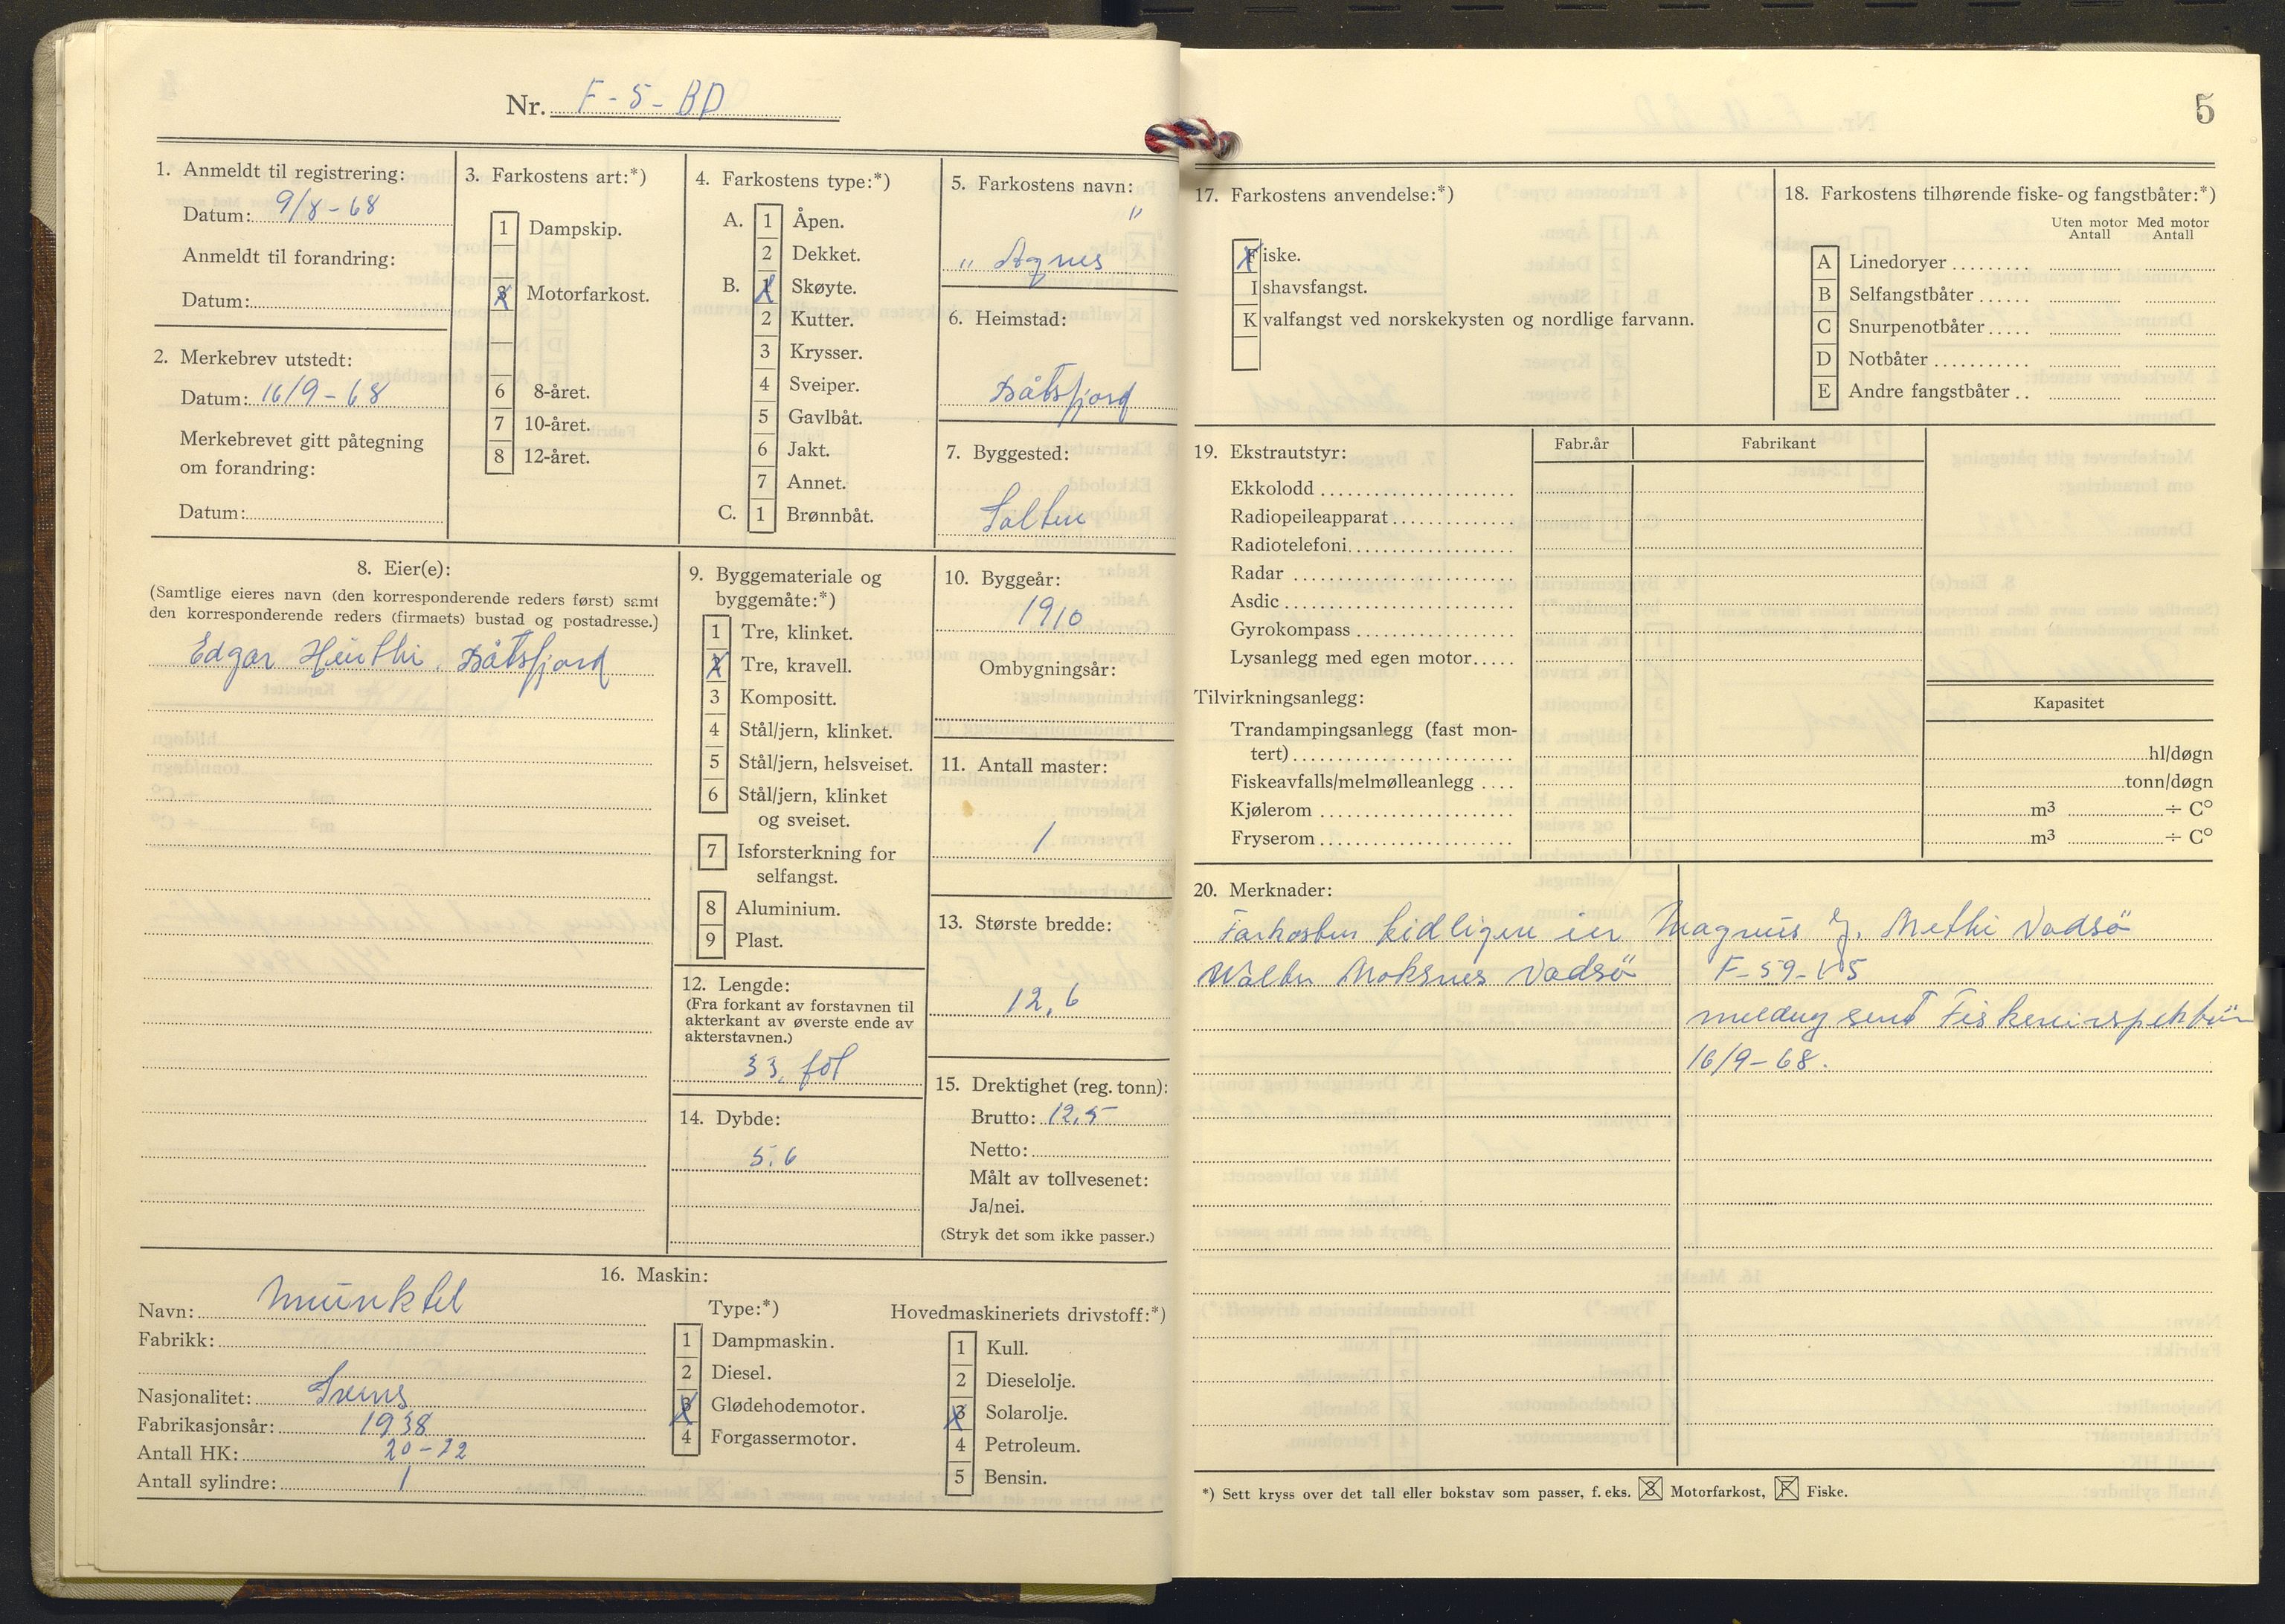 Nr. F-5-BD
1. Anmeldt til registrering:
Datum: 9/8-68
Anmeldt til forandring:
Datum:
2. Merkebrev utstedt:
Datum: 16/9-68
Merkebrevet gitt påtegning
om forandring:
Datum:
3. Farkostens art:*)
1 Dampskip.
3 Motorfarkost.
6 8-året.
7 10-året.
8 12-året.
4. Farkostens type:*)
A. 1 Åpen.
2 Dekket.
B. 1 Skøyte.
2 Kutter.
3 Krysser.
4 Sveiper.
5 Gavlbåt.
6 Jakt.
7 Annet.
C. 1 Brønnbåt.
5. Farkostens navn:
"Agnes"
6. Heimstad:
Båtsfjord
7. Byggested:
Salten
8. Eier(e):
(Samtlige eieres navn (den korresponderende reders først) samt
den korresponderende reders (firmaets) bustad og postadresse.)
Edgar Båtsfjord
9. Byggemateriale og
byggemåte:*)
1 Tre, klinket.
2 Tre, kravell.
3 Kompositt.
4 Stål/jern, klinket.
5 Stål/jern, helsveiset.
6 Stål/jern, klinket
og sveiset.
7 Isforsterkning for
selfangst.
8 Aluminium.
9 Plast.
10. Byggeår:
1910
Ombygningsår:
11. Antall master:
1
12. Lengde:
(Fra forkant av forstavnen til
akterkant av øverste ende av
akterstavnen.)
33. fot
13. Største bredde:
12,6
14. Dybde:
5.6
15. Drektighet (reg. tonn):
Brutto: 12,5
Netto:
Målt av tollvesenet:
Ja/nei.
(Stryk det som ikke passer.)
16. Maskin:
Navn: Munktel
Fabrikk:
Nasjonalitet: Svensk
Fabrikasjonsår: 1938
Antall HK: 20-22
Antall sylindre: 1
Type:*)
1 Dampmaskin.
2 Diesel.
3 Glødehodemotor.
4 Forgassermotor.
Hovedmaskineriets drivstoff:*)
1 Kull.
2 Dieselolje.
3 Solarolje.
4 Petroleum.
5 Bensin.
5
17. Farkostens anvendelse:*)
Fiske.
Ishavsfangst.
Kvalfangst ved norskekysten og nordlige farvann.
18. Farkostens tilhørende fiske- og fangstbåter:*)
Uten motor Med motor
Antall Antall
A Linedoryer
B Selfangstbåter
C Snurpenotbåter
D Notbåter
E Andre fangstbåter
19. Ekstrautstyr:
Fabr.år Fabrikant
Ekkolodd
Radiopeileapparat
Radiotelefoni
Radar
Asdic
Gyrokompass
Lysanlegg med egen motor
Tilvirkningsanlegg:
Kapasitet
Trandampingsanlegg (fast mon-
tert) hl/døgn
Fiskeavfalls/melmølleanlegg tonn/døgn
Kjølerom m³ ÷ C°
Fryserom m³ ÷ C°
20. Merknader:
Farkosten tidligere eier Magnus Methi Vadsö
Walter Moksnes Vadsö F-59-VS
melding sent Fiskeriinspektör
16/9-68.
*) Sett kryss over det tall eller bokstav som passer, f. eks. 3 Motorfarkost, F Fiske.